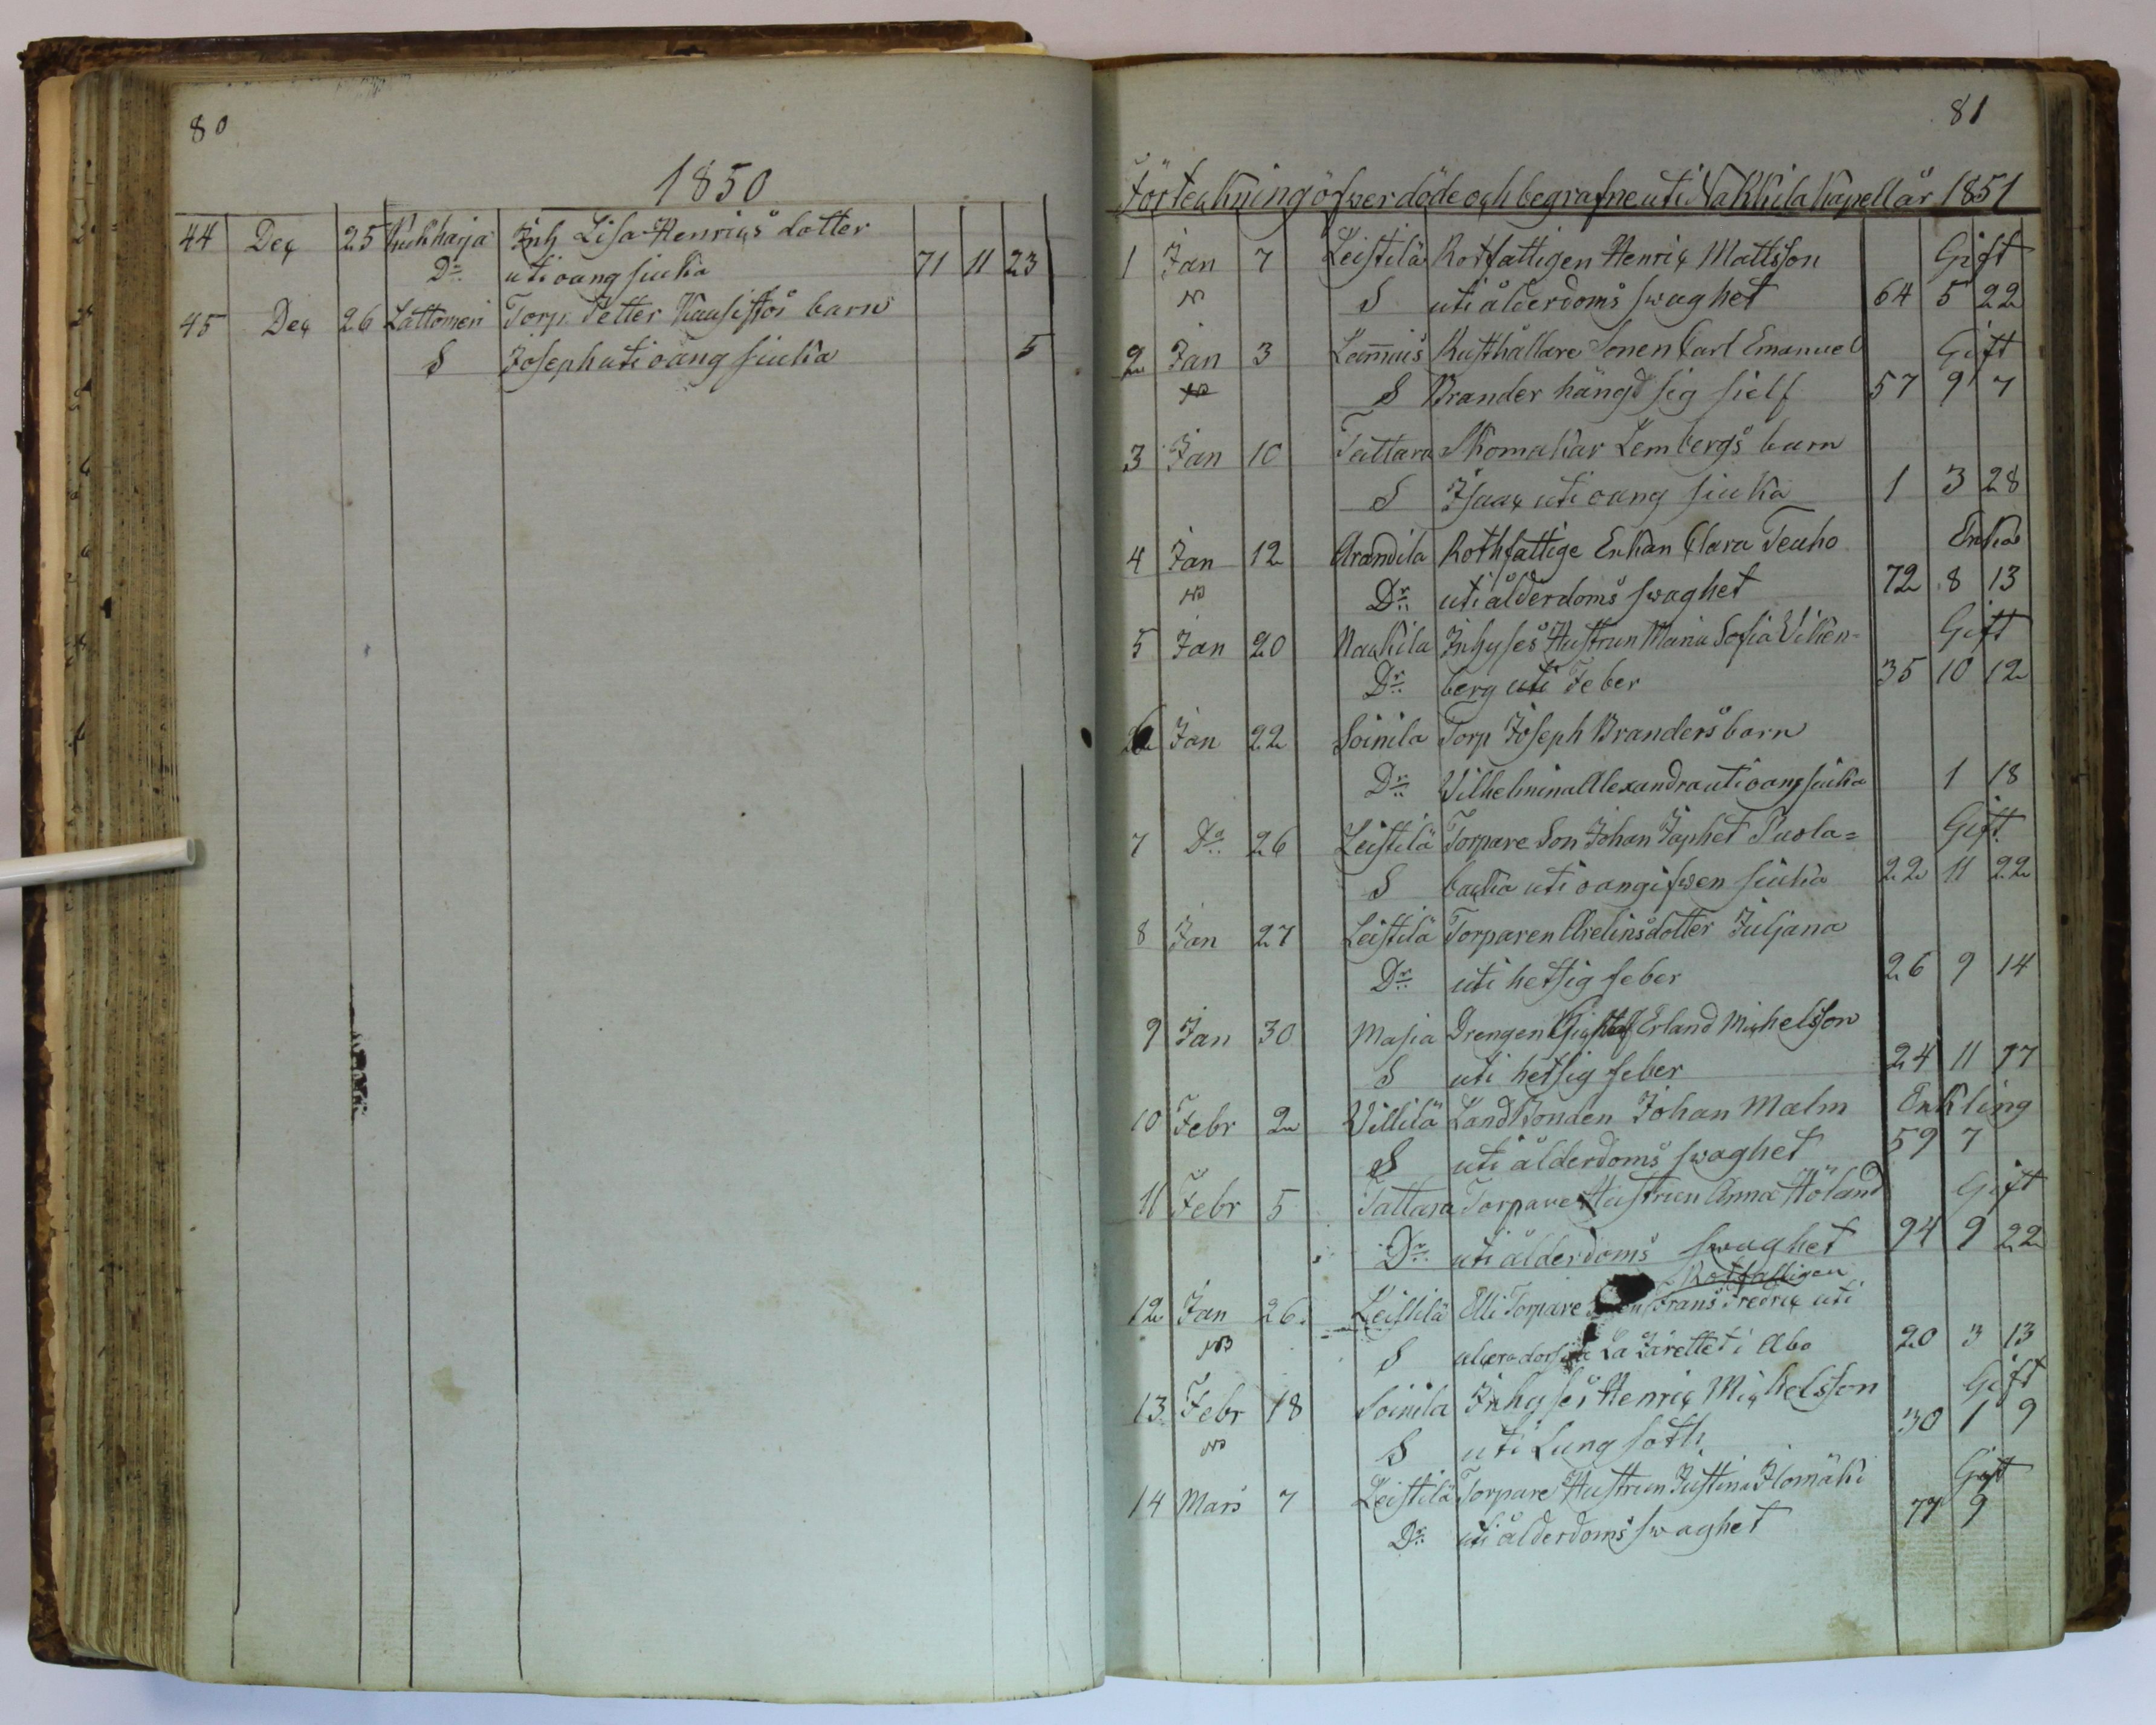 80
1850
44 Dec 25 Kukharja Inh Lisa Henrics dotter
Dr utioang siuka 71 11 23
45 Dec 26 Lattomeri Torp Petter Kausistos barn
S Joseph uti oang siuka 5
81
Förteckning öfwer döde och begrafne uti Nakkila Kapell år 1851
1 Jan 7 Leistilä Rotfattigen Henric Mattsson Gift
NB S uti ålderdoms swaghet 64 5 22
2 Jan 3 Lammais Rusthållare Sonen Carl Emanuel Gift
S Brander hängd sig sielf 57 9 7
3 Jan 10 Tattara Skomakar Lembergs barn
S Isaac uti oang siuka 1 3 28
4 Jan 12 Arandila Rothfattige Enkan Clara Teuho Enka
NB Dr uti ålderdoms swaghet 72 8 13
5 Jan 20 Nackila Inhyses Hustrun Maria Sofia Viken- Gift
Dr berg uti Feber 35 10 12
6 Jan 22 Soinila Torp Joseph Branders barn
Dr Vilhelmina Alexandra uti oang siuka 1 18
7 Do 26 Leistilä Torpare Son Johan Japhet Puola= Gift
S backa uti oangifwen siuka 22 11 22
8 Jan 27 Leistilä Torparen Arelins dotter Juljana
Dr uti hetsig feber 26 9 14
9 Jan 30 Masia Drengen Gustaf Erland Michelsson
S uti hetsig feber 24 11 17
10 Febr 2 Villilä Landbonden Johan Malm Enkling
S uti ålderdoms swaghet 59 7
11 Febr 5 Tattara Torpare Hustrun Anna Höland Gift
Dr uti ålderdoms swaghet 94 9 22
Rotfattigen
12 Jan 26 Leistilä Elli Torpare Sonen Frans Fredric uti
NB S La Zarettet i Åbo 20 3 13
13 Febr 18 Soinila Inhyses Henric Michelsson Gift
NB S uti Lung soth 30 1 9
14 Mars 7 Leistilä Torpare Hustrun Justina Ilomäki Gift
Dr uti ålderdoms swaghet 77 9